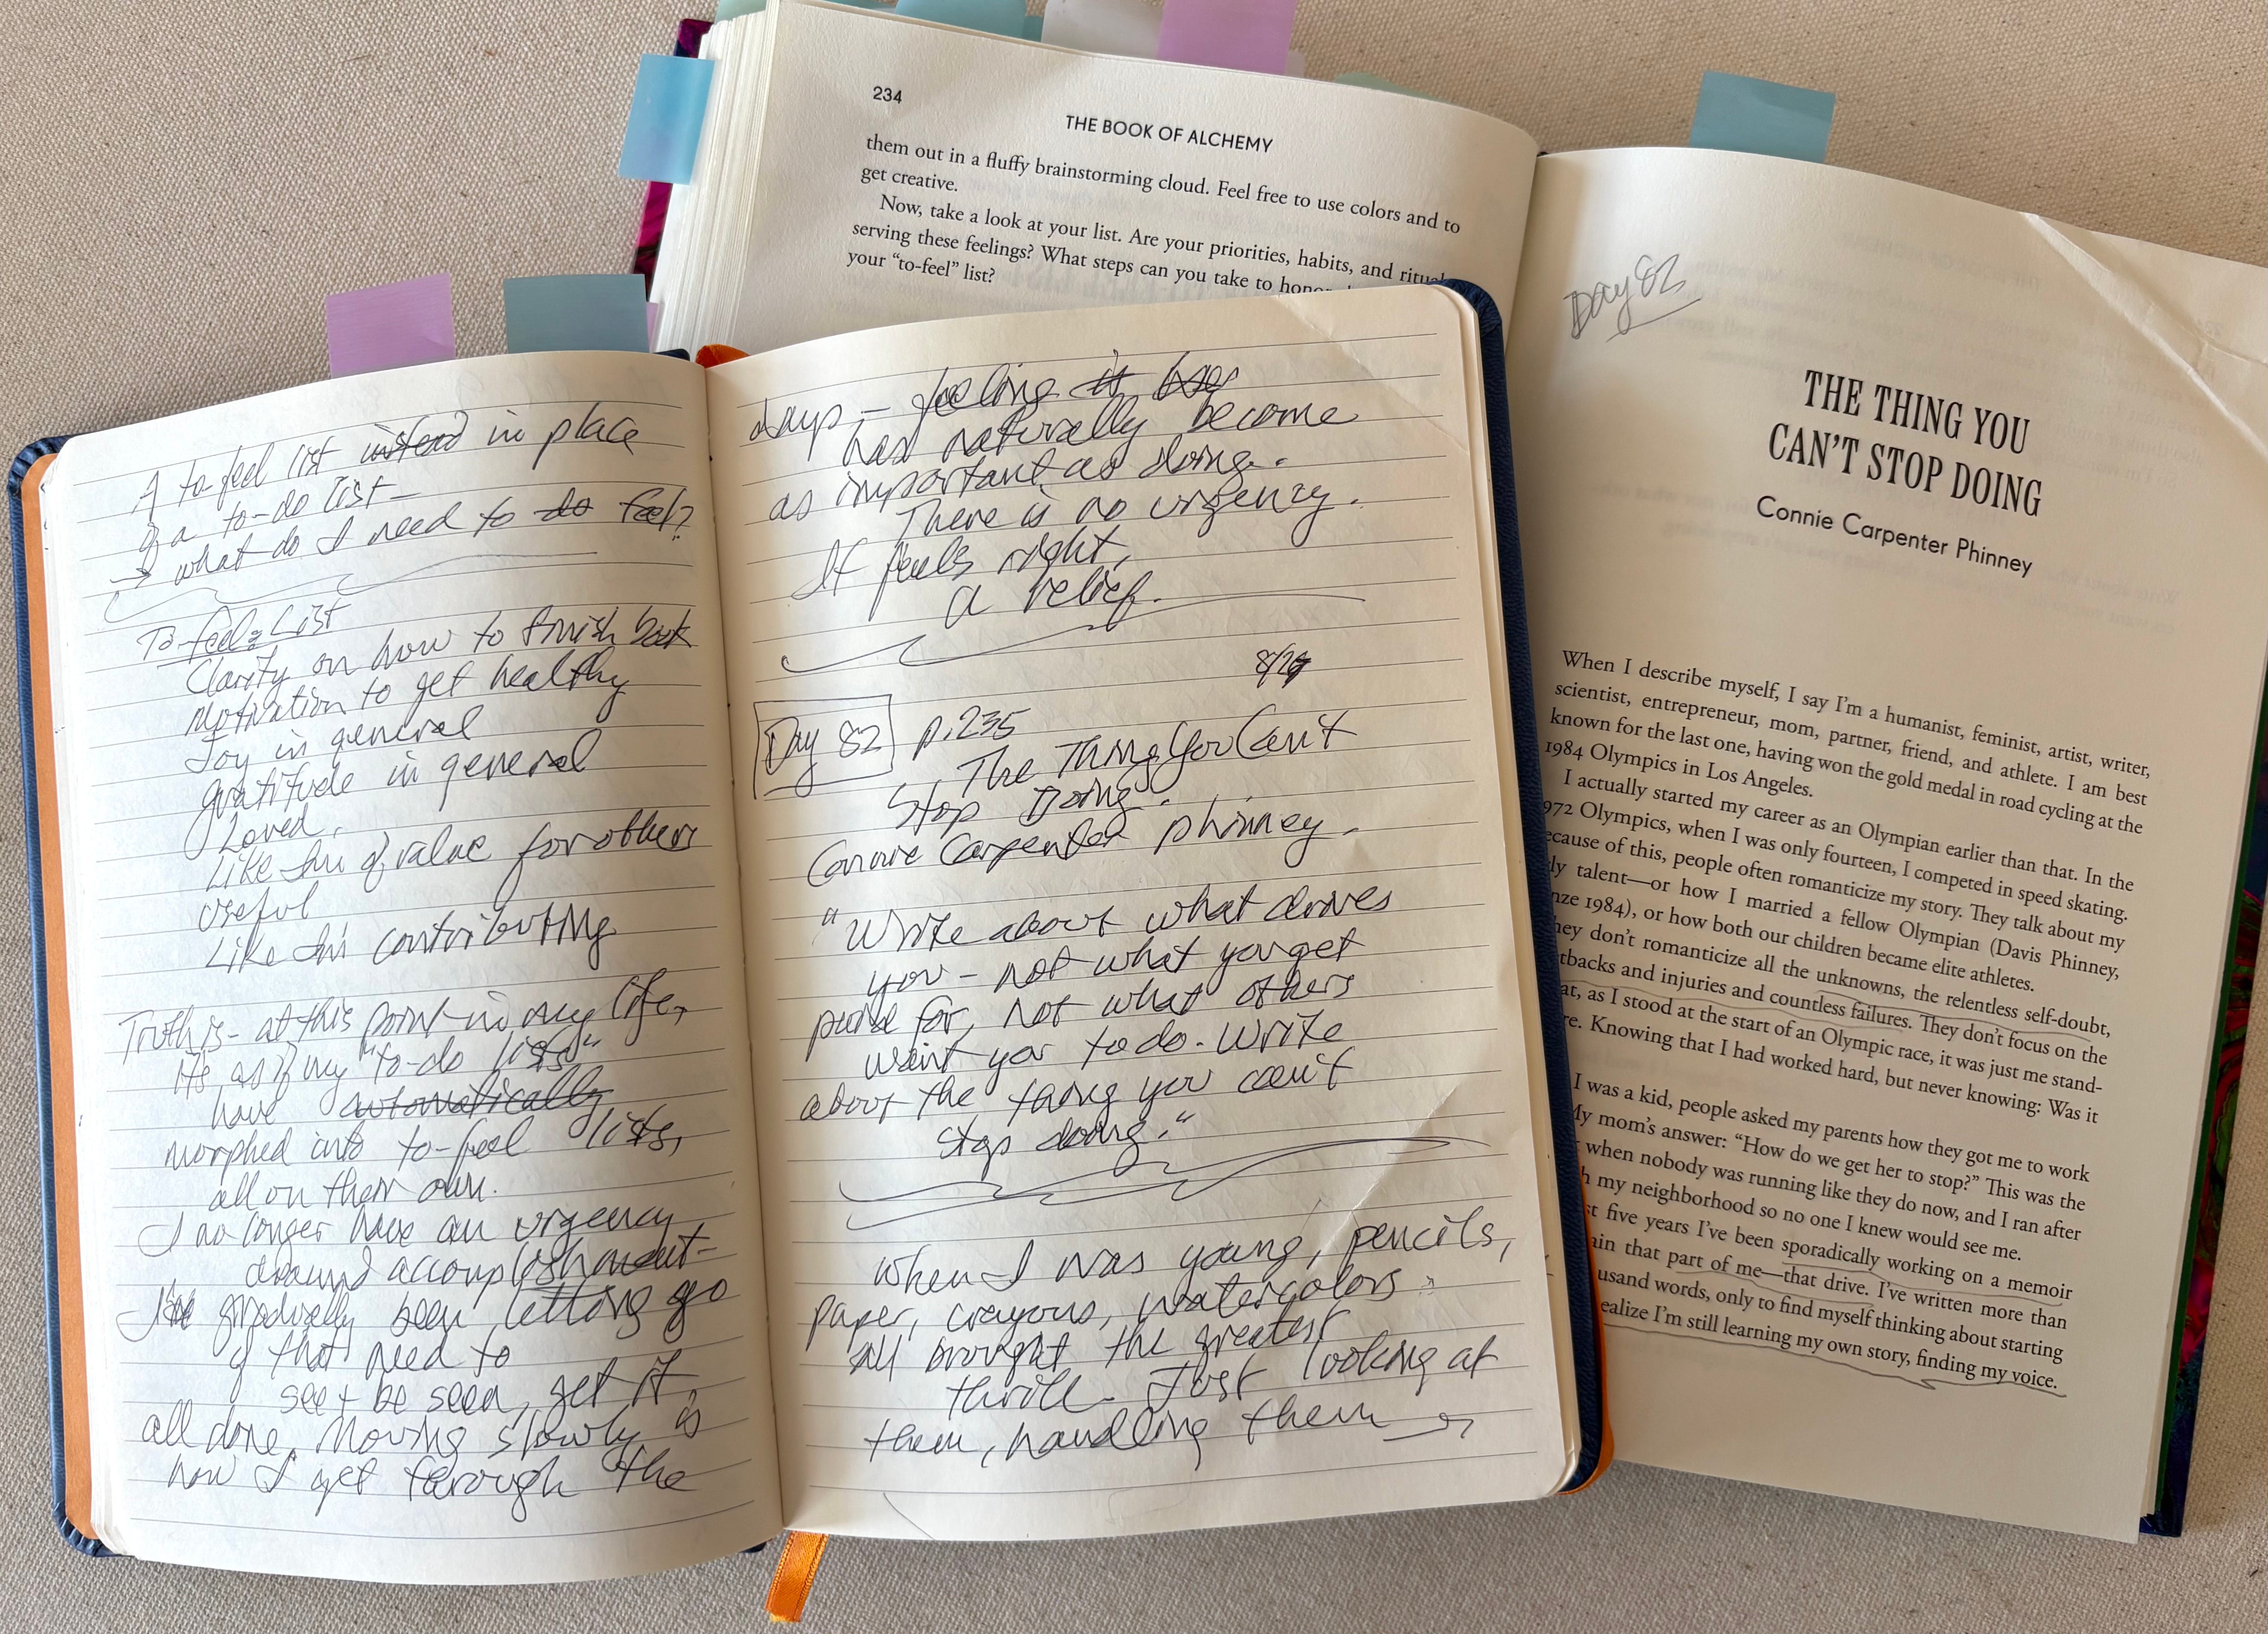 234
THE BOOK OF ALCHEMY
them out in a fluffy brainstorming cloud. Feel free to use colors and to
get creative.
Now, take a look at your list. Are your priorities, habits, and ritual
serving these feelings? What steps can you take to honor
your "to-feel" list?
A to feel list instead in place
of a to-do list—
→ what do I need to do feel?
To feel: List
Clarity on how to finish book
Motivation to get healthy
Joy in general
gratitude in general
Loved.
Like I'm of value for others
useful
Like I'm contributing
Truth is - at this point in my life,
it's as if my "to-do lists"
have automatically
morphed into to-feel lists,
all on their own.
I no longer have an urgency
around accomplishment—
I've gradually been letting go
of that need to
see + be seen, get it
all done. Moving slowly is
how I get through the
days — feeling it has
has naturally become
as important as doing.
There is no urgency.
It feels right,
a relief.
8/29
Day 82 p.235
The Thing You Can't
Stop Doing.
Connie Carpenter Phinney.
"Write about what drives
you - not what you get
for, not what others
want you to do. Write
about the thing you can't
stop doing."
when I was young, pencils,
paper, crayons, watercolors
all brought the greatest
thrill. Just looking at
them, handling them →
Day 82
THE THING YOU
CAN'T STOP DOING
Connie Carpenter Phinney
When I describe myself, I say I'm a humanist, feminist, artist, writer,
scientist, entrepreneur, mom, partner, friend, and athlete. I am best
known for the last one, having won the gold medal in road cycling at the
1984 Olympics in Los Angeles.
I actually started my career as an Olympian earlier than that. In the
972 Olympics, when I was only fourteen, I competed in speed skating.
ecause of this, people often romanticize my story. They talk about my
ly talent—or how I married a fellow Olympian (Davis Phinney,
nze 1984), or how both our children became elite athletes.
hey don't romanticize all the unknowns, the relentless self-doubt,
tbacks and injuries and countless failures. They don't focus on the
at, as I stood at the start of an Olympic race, it was just me stand-
re. Knowing that I had worked hard, but never knowing: Was it
I was a kid, people asked my parents how they got me to work
My mom's answer: "How do we get her to stop?" This was the
when nobody was running like they do now, and I ran after
h my neighborhood so no one I knew would see me.
st five years I've been sporadically working on a memoir
ain that part of me—that drive. I've written more than
usand words, only to find myself thinking about starting
ealize I'm still learning my own story, finding my voice.